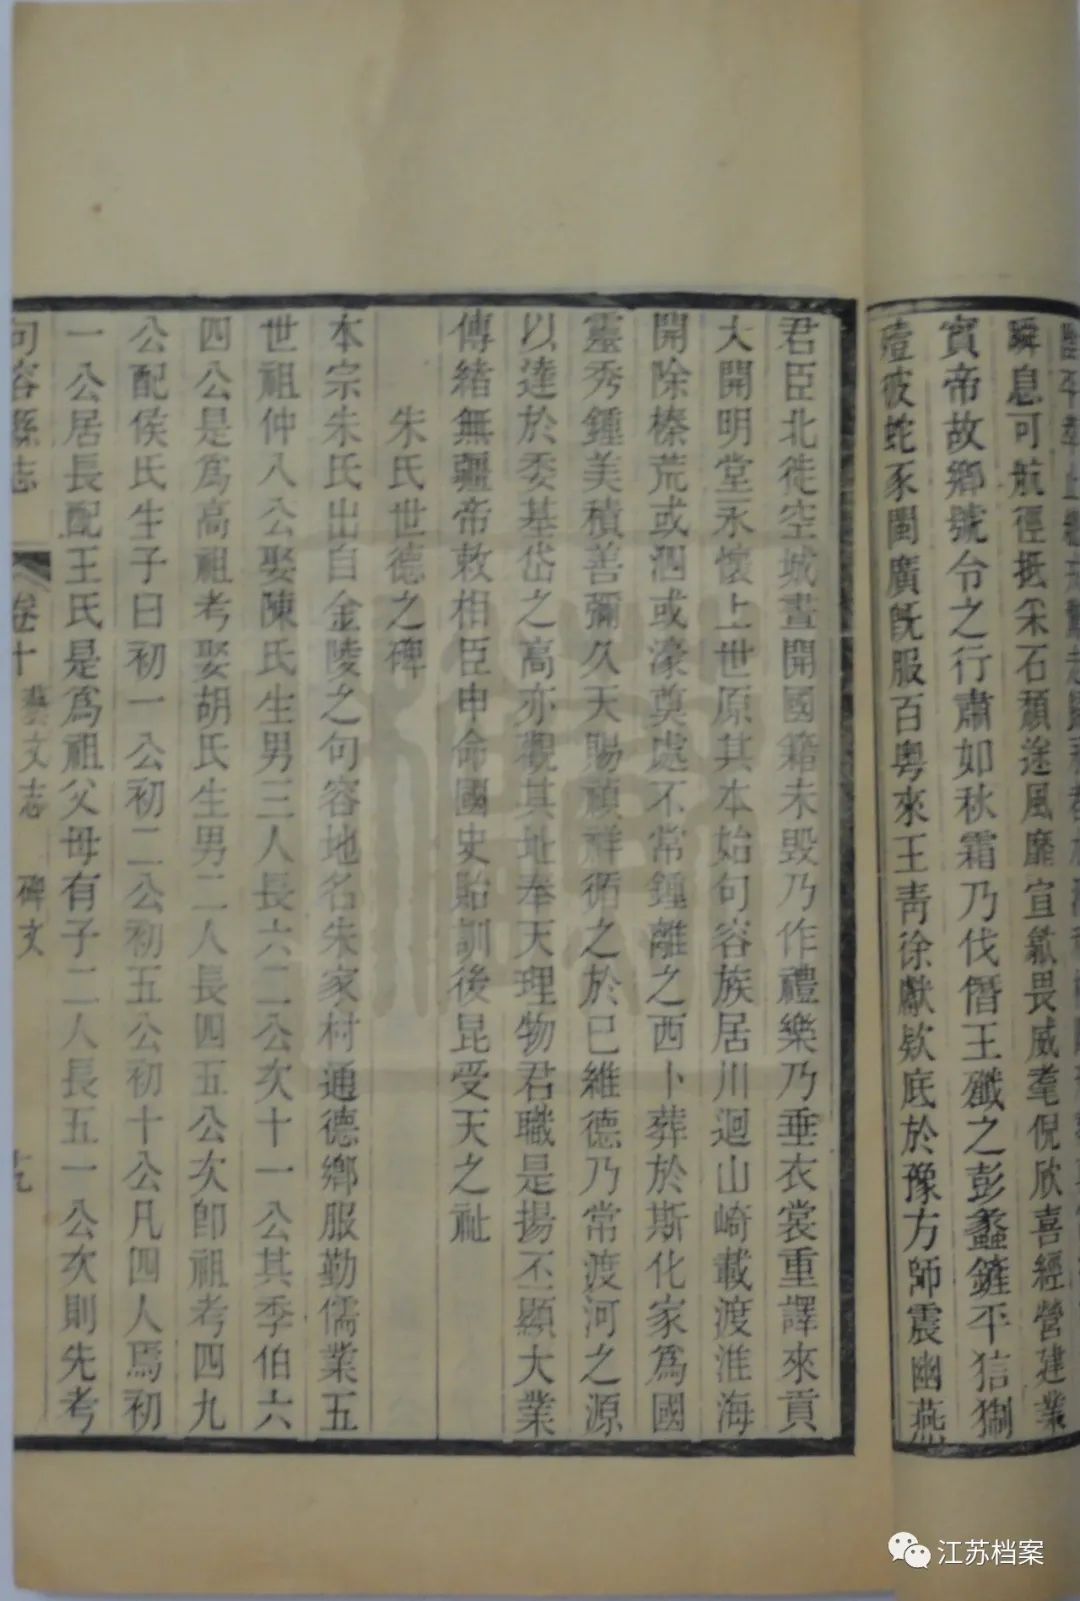 瞬息可航徑抵采石頹途風靡宣歙畏威耄倪欣喜經營建業
實帝故鄉號令之行肅如秋霜乃伐僭王殲之彭蠡鏟平信猘
殪彼蛇豕閩廣既服百粵來王靑徐獻欵底於豫方師震幽燕
君臣北徙空城晝開國籍未毀乃作禮樂乃垂衣裳重譯來貢
大開明堂永懷上世原其本始句容族居川迴山崎載渡淮海
開除榛荒或泗或濠奠處不常鍾離之西卜葬於斯化家爲國
靈秀鍾美積善彌久天賜禎祥循之於已維德乃常渡河之源
以達於委基岱之高亦觀其址奉天理物君職是揚丕顯大業
傳緒無疆帝敕相臣申命國史貽訓後昆受天之祉
朱氏世德之碑
本宗朱氏出自金陵之句容地名朱家村通德鄉服勤儒業五
世祖仲八公娶陳氏生男三人長六二公次十一公其季伯六
四公是爲高祖考娶胡氏生男二人長四五公次卽祖考四九
公配侯氏生子曰初一公初二公初五公初十公凡四人焉初
一公居長配王氏是爲祖父母有子二人長五一公次則先考
句容縣志 卷十 藝文志 碑文 十九
江苏档案